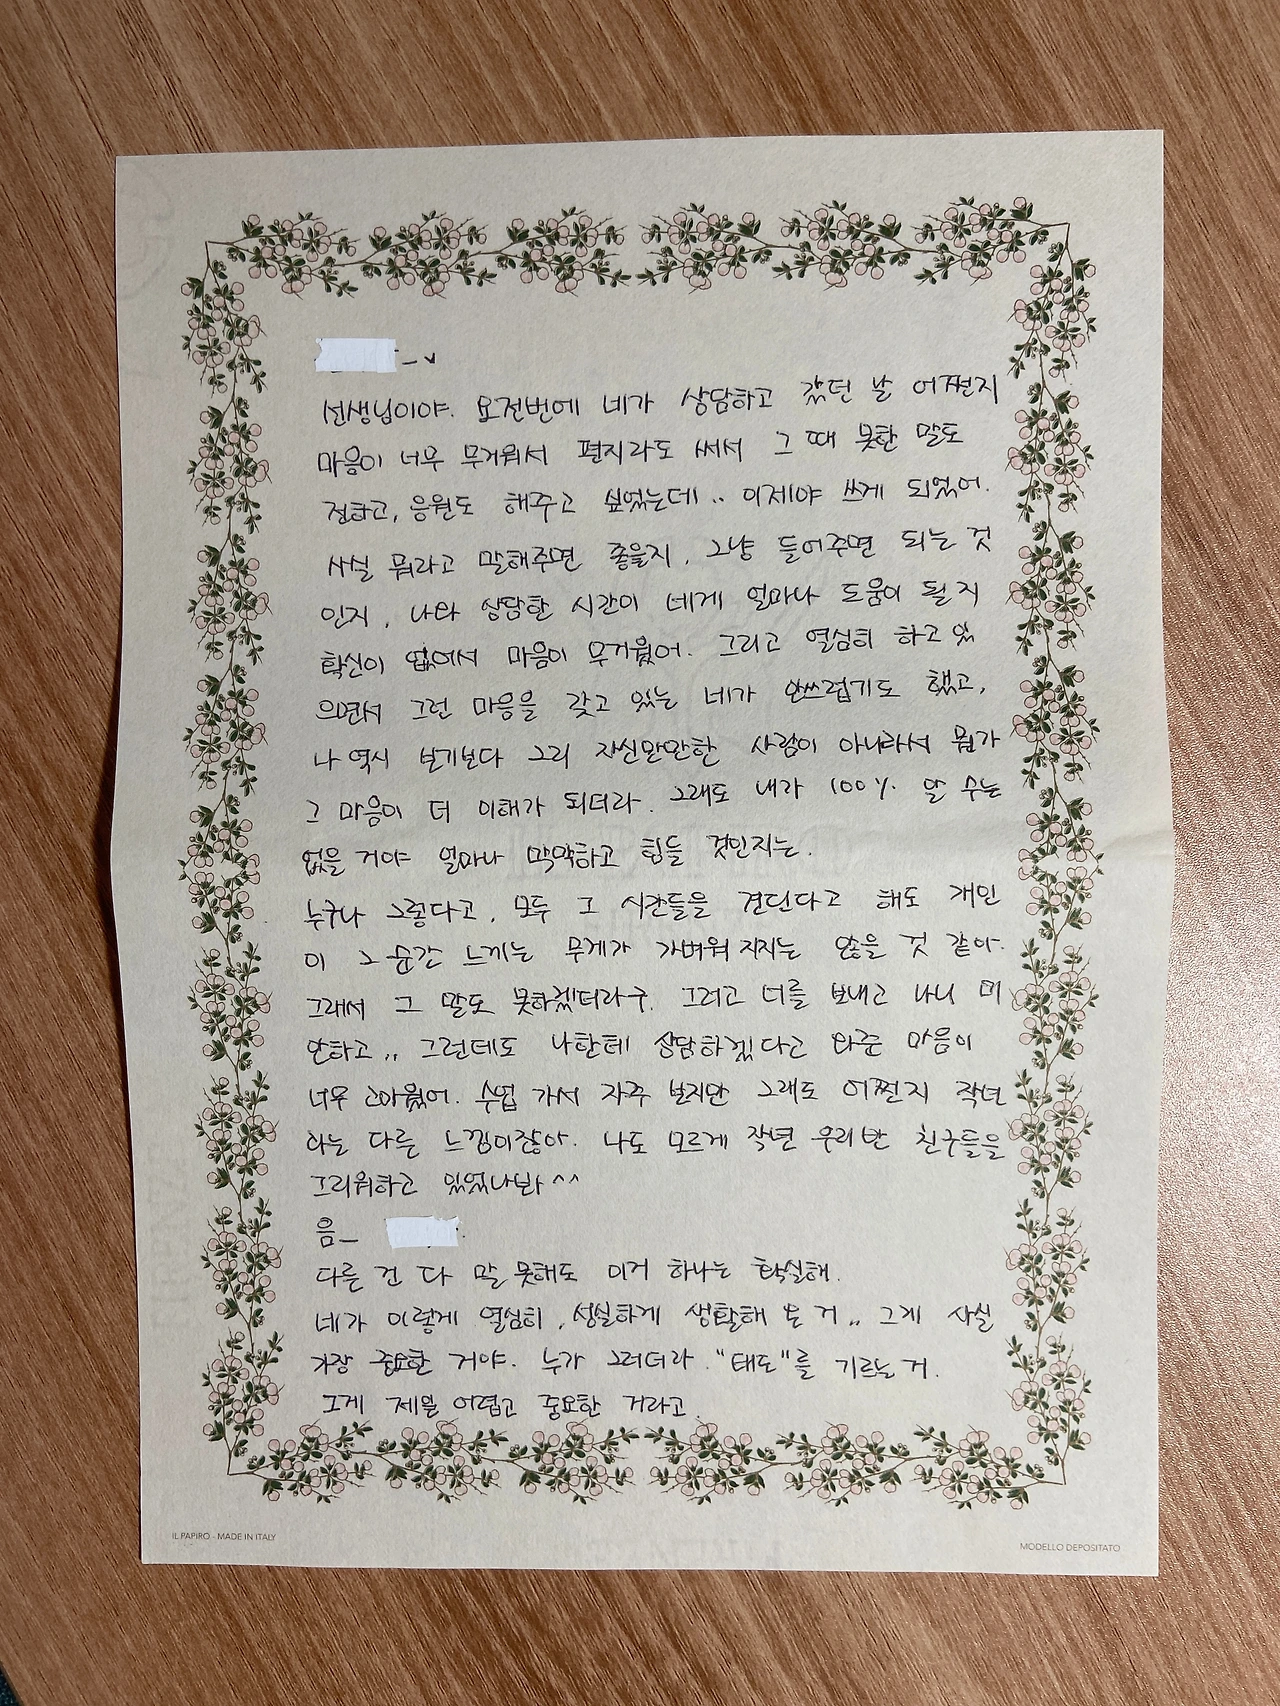 선생님이야. 요전번에 네가 상담하고 갔던 날 어쩐지
마음이 너무 무거워서 편지라도 써서 그 때 못한 말도
전하고, 응원도 해주고 싶었는데.. 이제야 쓰게 되었어.
사실 뭐라고 말해주면 좋을지, 그냥 들어주면 되는 것
인지, 나와 상담한 시간이 네게 얼마나 도움이 될지
확신이 없어서 마음이 무거웠어. 그리고 열심히 하고 있
으면서 그런 마음을 갖고 있는 네가 안쓰럽기도 했고,
나 역시 보기보다 그리 자신만만한 사람이 아니라서 뭔가
그 마음이 더 이해가 되더라. 그래도 내가 100% 알 수는
없을 거야 얼마나 막막하고 힘들 것인지는.
누구나 그렇다고, 모두 그 시간들을 견딘다고 해도 개인
이 그 순간 느끼는 무게가 가벼워지지는 않을 것 같아.
그래서 그 말도 못하겠더라구. 그러고 너를 보내고 나니 미
안하고.. 그런데도 나한테 상담하겠다고 와준 마음이
너무 고마웠어. 수업 가서 자주 보지만 그래도 어쩐지 작년
과는 다른 느낌이잖아. 나도 모르게 작년 우리반 친구들을
그리워하고 있었나봐 ^^
음_
다른 건 다 말 못해도 이거 하나는 확실해.
네가 이렇게 열심히, 성실하게 생활해 온 거.. 그게 사실
가장 중요한 거야. 누가 그러더라. "태도"를 기르는 거.
그게 제일 어렵고 중요한 거라고
IL PAPIRO - MADE IN ITALY
MODELLO DEPOSITATO